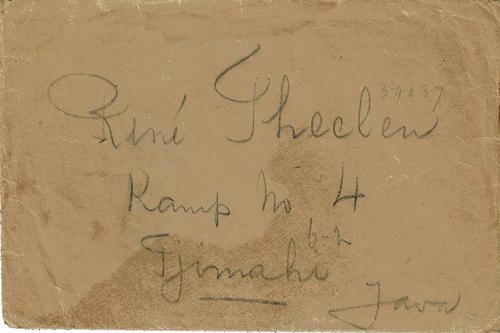 René Theelen
39037
Kamp No 4
6-2
Tjimahi
Java